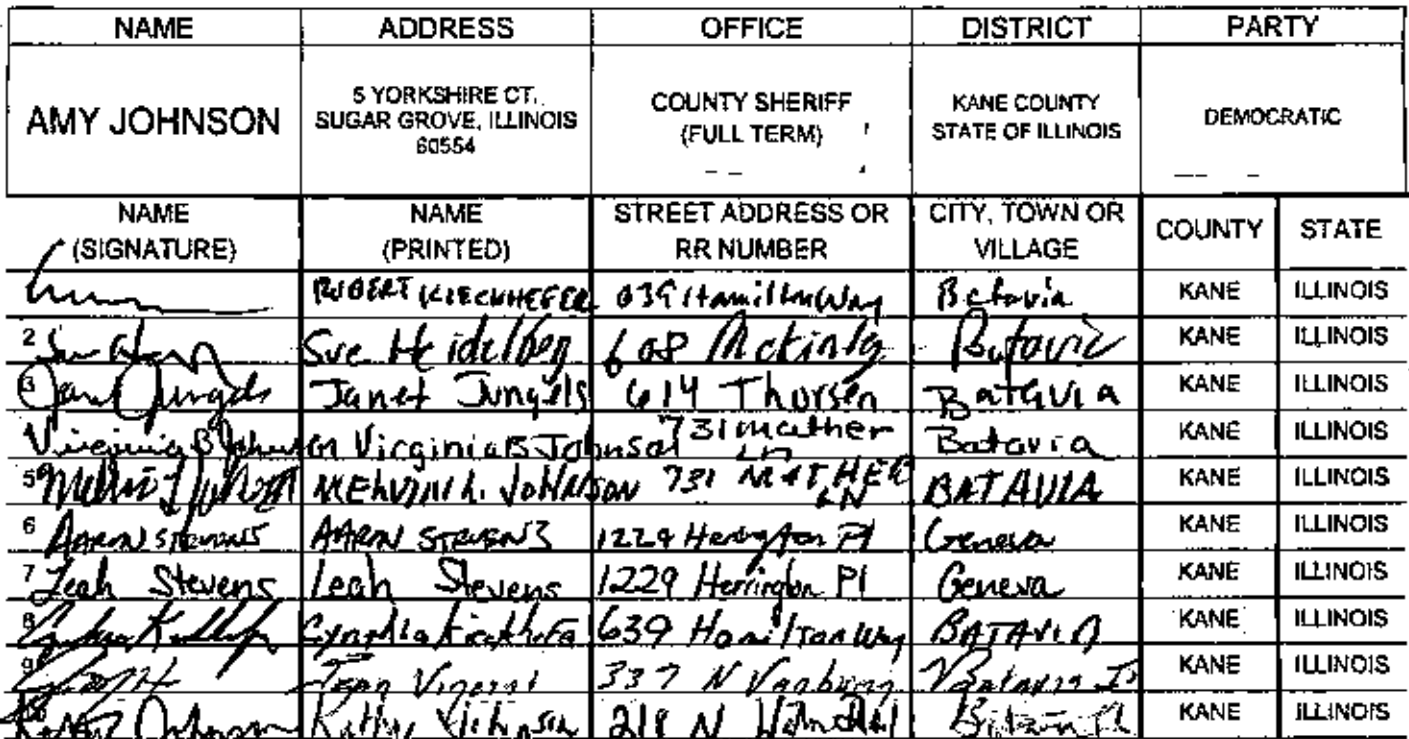 NAME ADDRESS OFFICE DISTRICT PARTY
AMY JOHNSON
5 YORKSHIRE CT.
SUGAR GROVE, ILLINOIS
60554
COUNTY SHERIFF
(FULL TERM)
KANE COUNTY
STATE OF ILLINOIS
DEMOCRATIC
NAME
(SIGNATURE)
NAME
(PRINTED)
STREET ADDRESS OR
RR NUMBER
CITY, TOWN OR
VILLAGE
COUNTY STATE
ROBERT KIECKHEFER 639 Hamilton Way Batavia KANE ILLINOIS
2 Sue Heidelberg 608 McKinley Batavia KANE ILLINOIS
3 Janet Jungels Janet Jungels 614 Thorsen Batavia KANE ILLINOIS
Virginia B Johnson Virginia B Johnson 731 Mather Ln Batavia KANE ILLINOIS
5 Melvin L Johnson MELVIN L. JOHNSON 731 MATHER LN BATAVIA KANE ILLINOIS
6 AARON STEVENS AARON STEVENS 1229 Herrington Pl Geneva KANE ILLINOIS
7 Leah Stevens Leah Stevens 1229 Herrington Pl Geneva KANE ILLINOIS
8 Cynthia 639 Hamilton Way BATAVIA KANE ILLINOIS
9 337 N Batavia KANE ILLINOIS
Johnson Kathy Johnson N KANE ILLINOIS